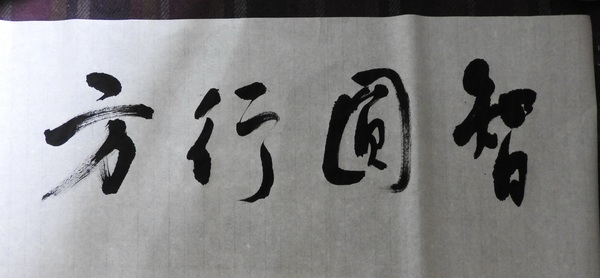 智圓行方